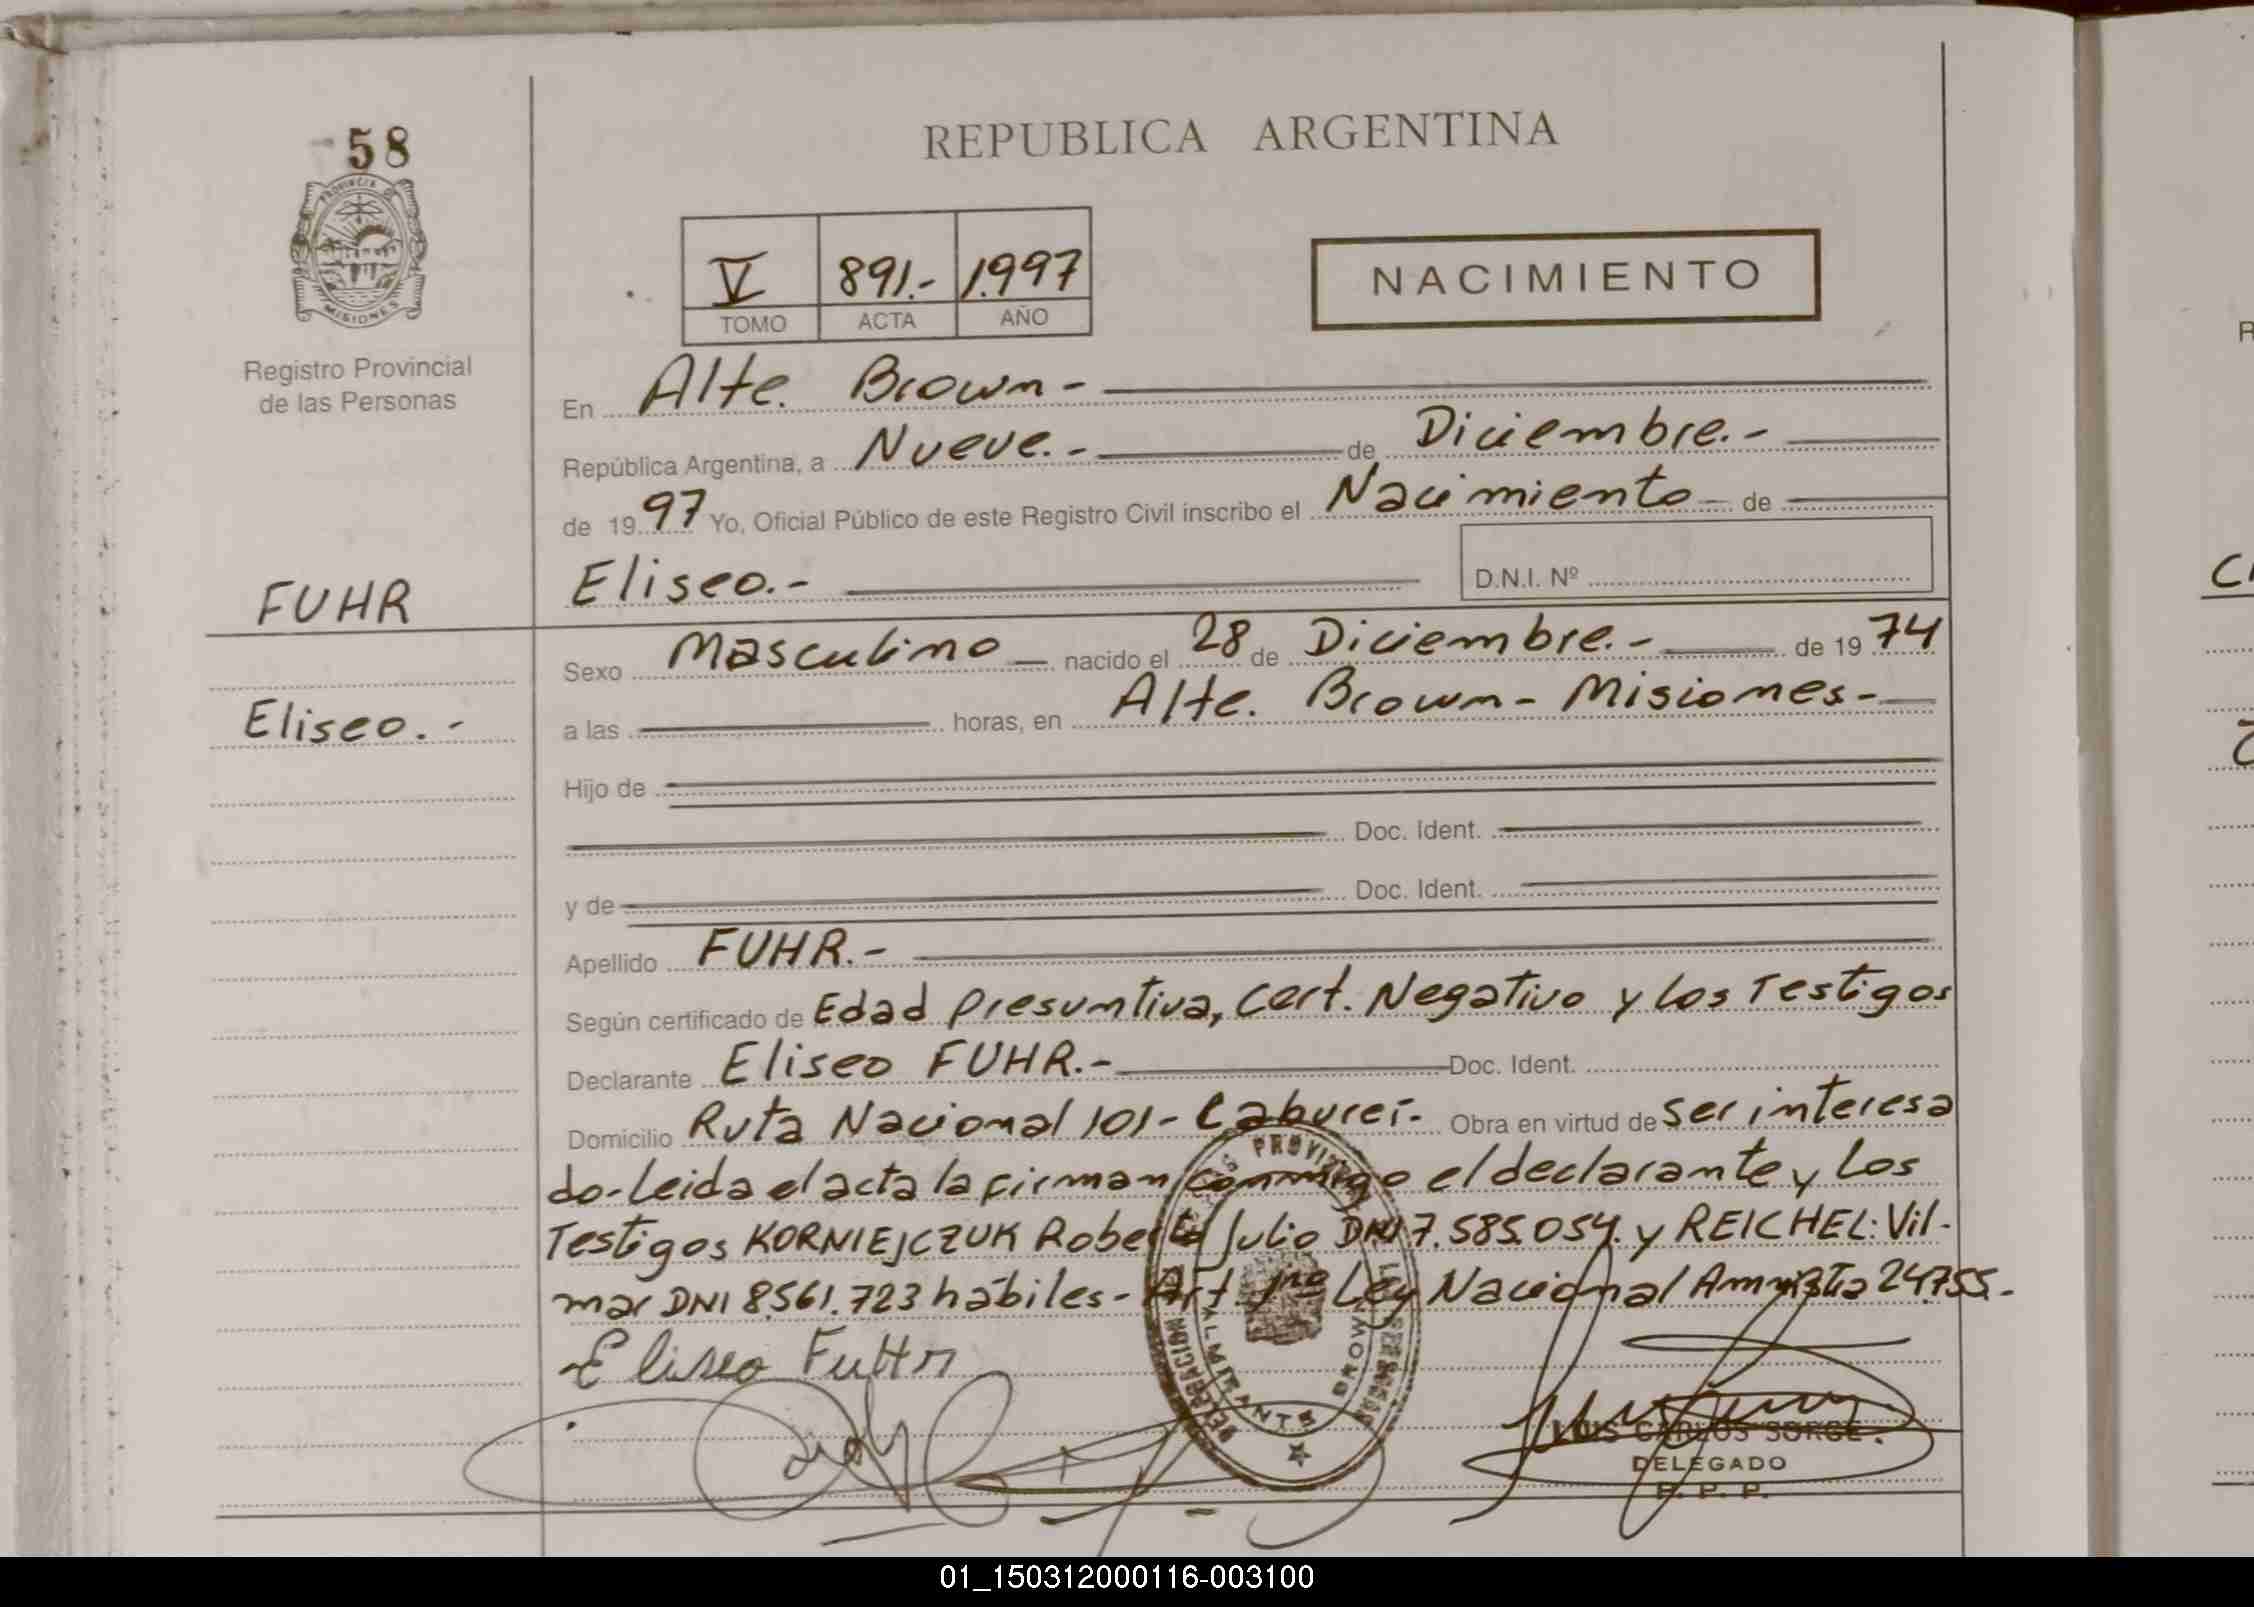 58
PROVINCIA DE
MISIONES
Registro Provincial
de las Personas
REPUBLICA ARGENTINA
V 891.- 1.997
TOMO ACTA AÑO
NACIMIENTO
En Alte. Brown-
República Argentina, a Nueve.- de Diciembre.-
de 1997 Yo, Oficial Público de este Registro Civil inscribo el Nacimiento de
Eliseo.- D.N.I. Nº
FUHR
Eliseo.-
Sexo Masculino nacido el 28 de Diciembre.- de 1974
a las horas, en Alte. Brown- Misiones-
Hijo de
Doc. Ident.
y de Doc. Ident.
Apellido FUHR.-
Según certificado de Edad Presuntiva, Cert. Negativo y los Testigos
Declarante Eliseo FUHR.- Doc. Ident.
Domicilio Ruta Nacional 101- Cabureí- Obra en virtud de ser interesa
do-Leida el acta la firman conmigo el declarante y los
Testigos KORNIEJCZUK Roberto Julio DNI 7.585.054. y REICHEL: Vil-
mar DNI 8.561.723 hábiles- Art. 1ro Ley Nacional Amnistia 24.755.-
Eliseo FuHr
DELEGACION
ALMIRANTE BROWN
LUIS CARLOS SORGE.
DELEGADO
R. P. P.
01_150312000116-003100